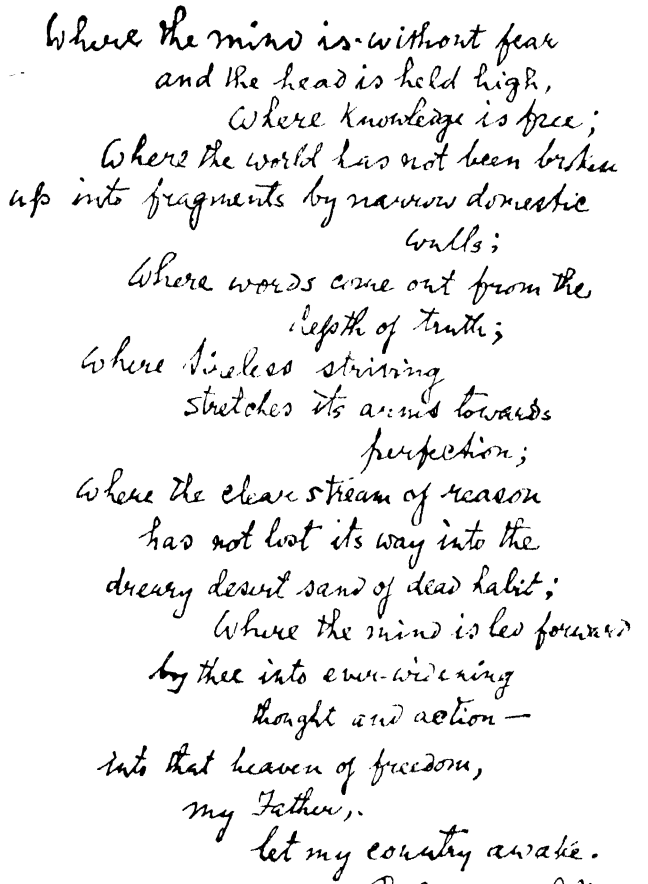 Where the mind is without fear
and the head is held high,
Where knowledge is free;
Where the world has not been broken
up into fragments by narrow domestic
walls;
Where words come out from the
depth of truth;
Where tireless striving
stretches its arms towards
perfection;
Where the clear stream of reason
has not lost its way into the
dreary desert sand of dead habit;
Where the mind is led forward
by thee into ever-widening
thought and action—
into that heaven of freedom,
my Father,
let my country awake.